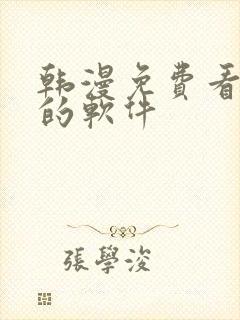 韩漫免費看
的軟件
張學浚